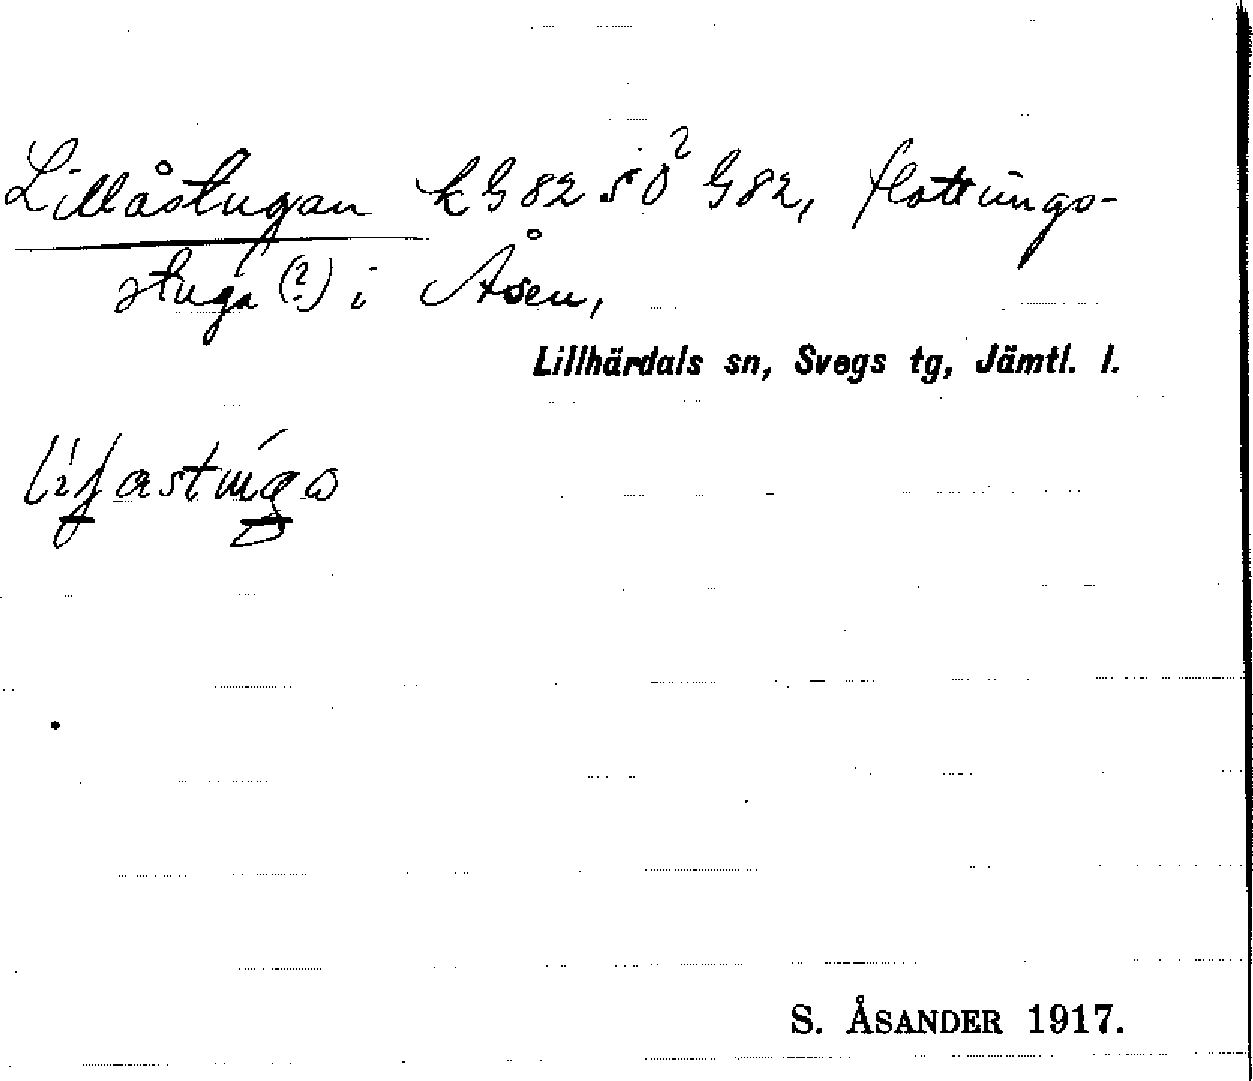 Lillåstugan kG82 50² G82, flottnings-
stuga (?) i Åsen,
Lillhärdals sn, Svegs tg, Jämtl. l.
S. ÅSANDER 1917.